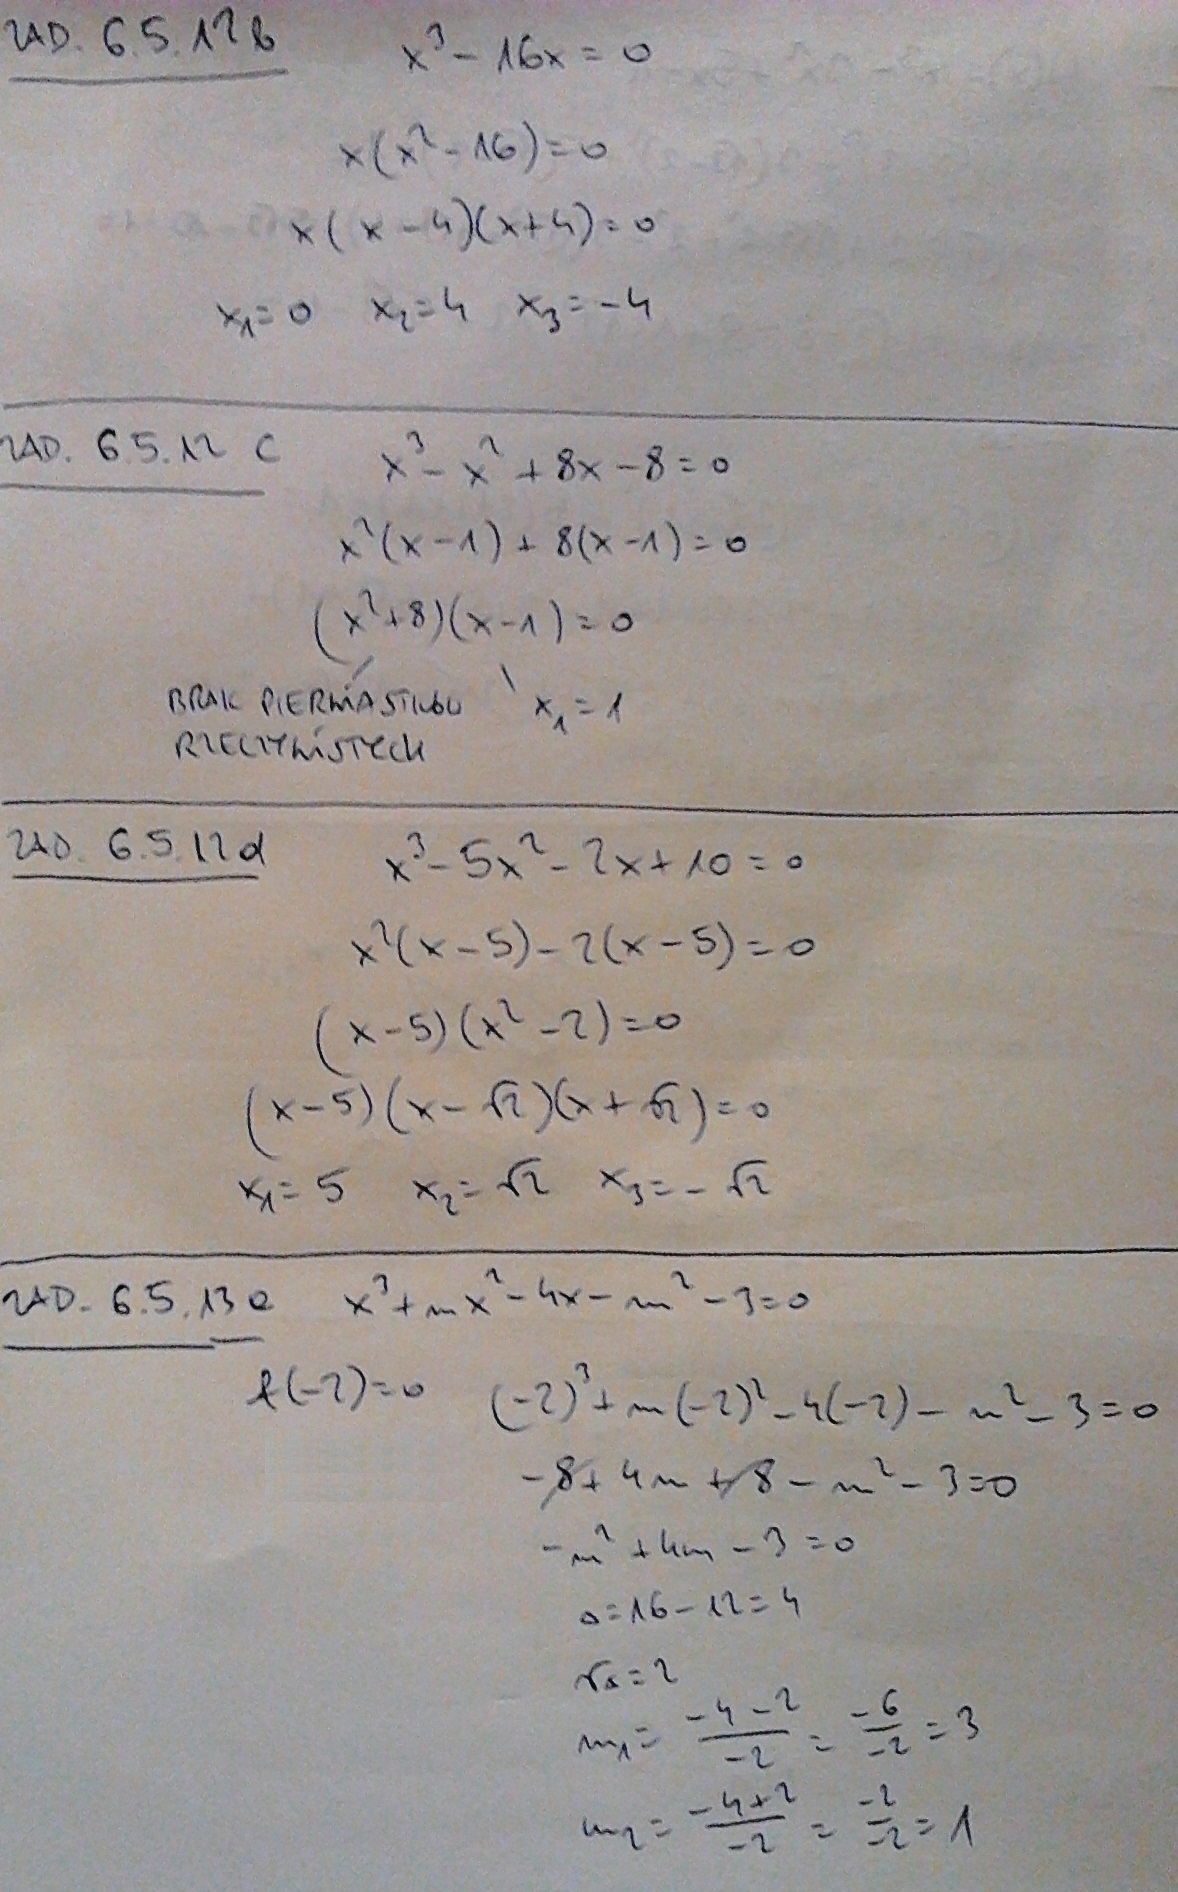 ZAD. 6.5.12b x³ - 16x = 0
x(x² - 16) = 0
x(x - 4)(x + 4) = 0
x₁ = 0 x₂ = 4 x₃ = -4
ZAD. 6.5.12 c x³ - x² + 8x - 8 = 0
x²(x - 1) + 8(x - 1) = 0
(x² + 8)(x - 1) = 0
BRAK PIERWIASTKÓW x₁ = 1
RZECZYWISTYCH
ZAD. 6.5.12d x³ - 5x² - 2x + 10 = 0
x²(x - 5) - 2(x - 5) = 0
(x - 5)(x² - 2) = 0
(x - 5)(x - √2)(x + √2) = 0
x₁ = 5 x₂ = √2 x₃ = -√2
ZAD. 6.5.13a x³ + mx² - 4x - m² - 3 = 0
f(-2) = 0 (-2)³ + m(-2)² - 4(-2) - m² - 3 = 0
-8 + 4m + 8 - m² - 3 = 0
-m² + 4m - 3 = 0
Δ = 16 - 12 = 4
√Δ = 2
m₁ = (-4 - 2)/(-2) = (-6)/(-2) = 3
m₂ = (-4 + 2)/(-2) = (-2)/(-2) = 1